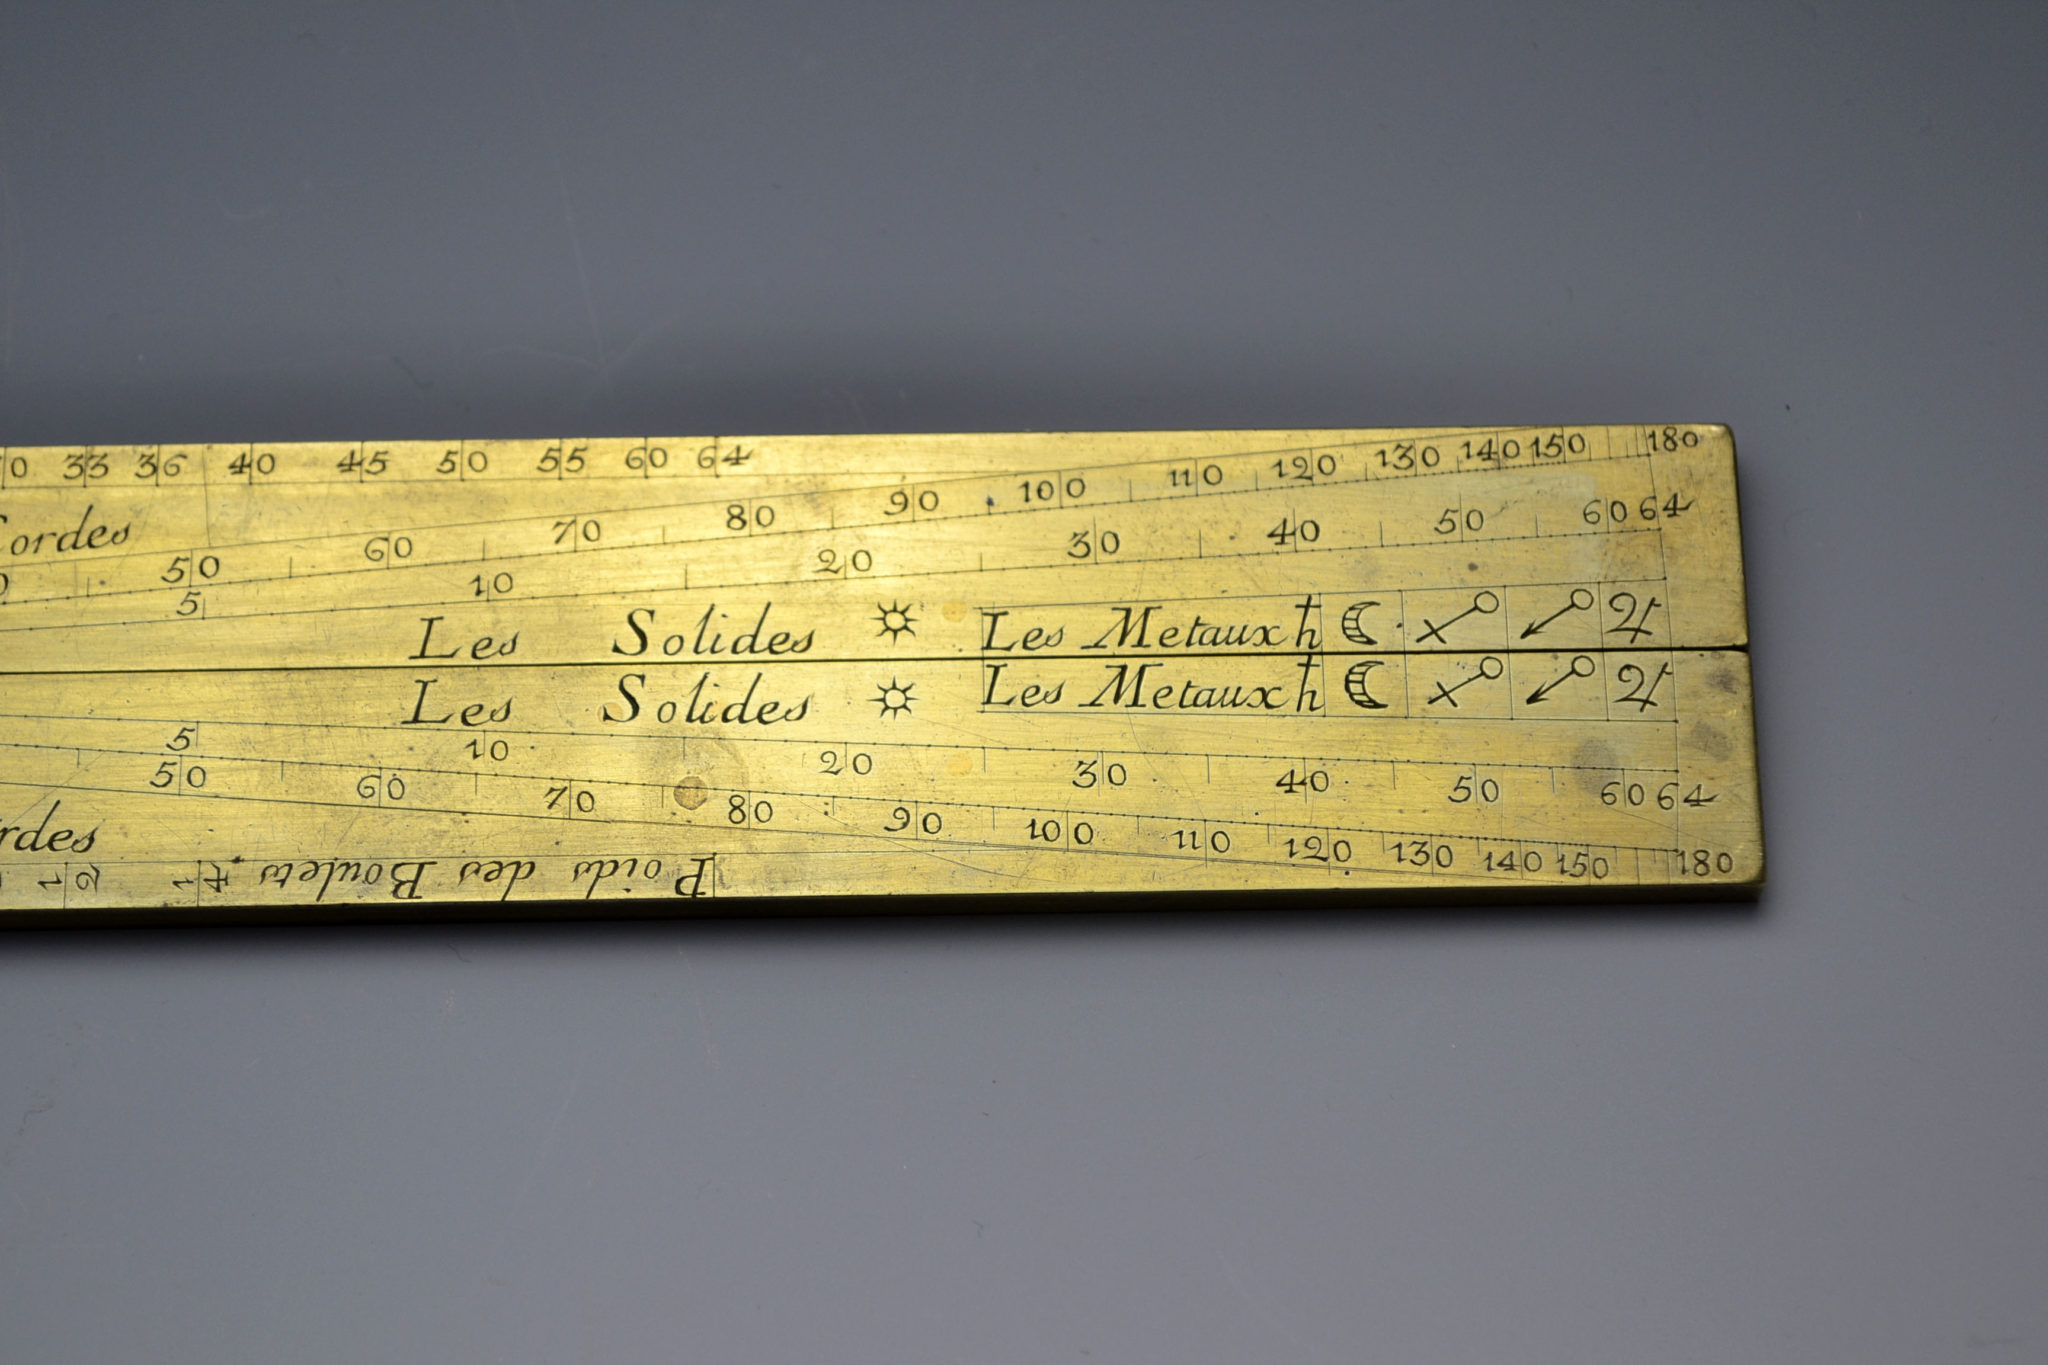 33 36 40 45 50 55 60 64
50 60 70 80 90 100 110 120 130 140 150 180
5 10 20 30 40 50 60 64
Les Solides ☼ Les Metaux ♄ ☾ ♀ ♂ ♃
Les Solides ☼ Les Metaux ♄ ☾ ♀ ♂ ♃
5 10 20 30 40 50 60 64
50 60 70 80 90 100 110 120 130 140 150 180
Poids des Boulets